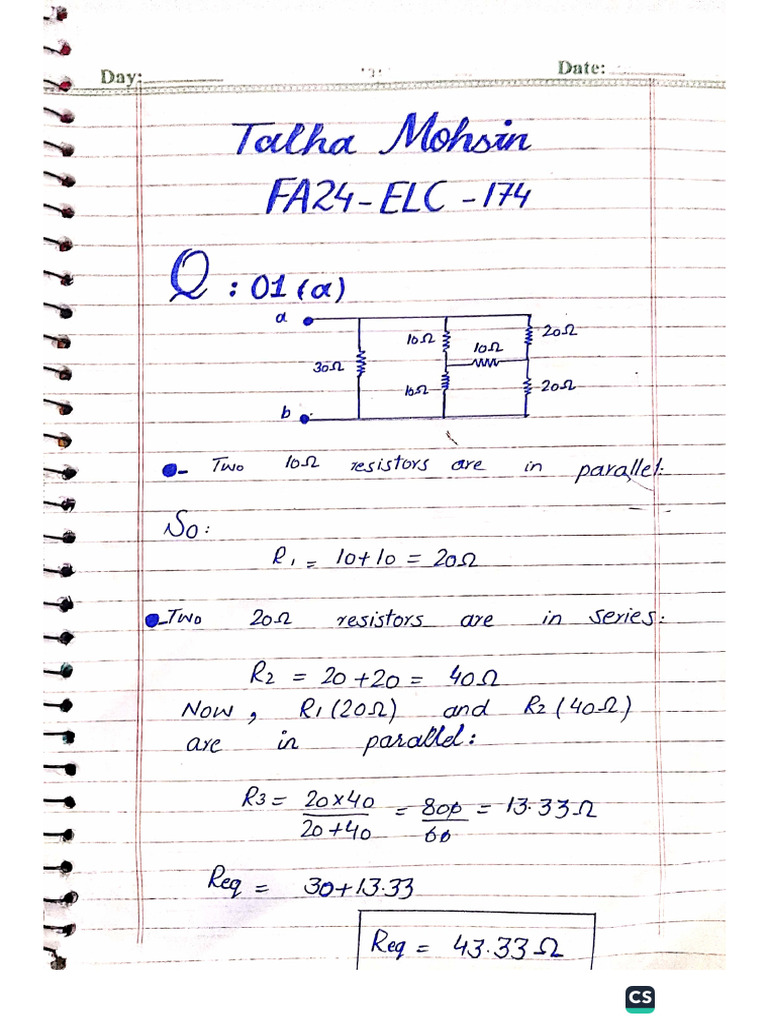 Day:
Date:
Talha Mohsin
FA24-ELC-174
Q: 01 (a)
a
10Ω
20Ω
10Ω
30Ω
10Ω
20Ω
b
- Two 10Ω resistors are in parallel:
So:
R1 = 10+10 = 20Ω
- Two 20Ω resistors are in series:
R2 = 20+20 = 40Ω
Now, R1 (20Ω) and R2 (40Ω)
are in parallel:
R3 = 20×40 / 20+40 = 800 / 60 = 13.33Ω
Req = 30+13.33
Req = 43.33Ω
CS